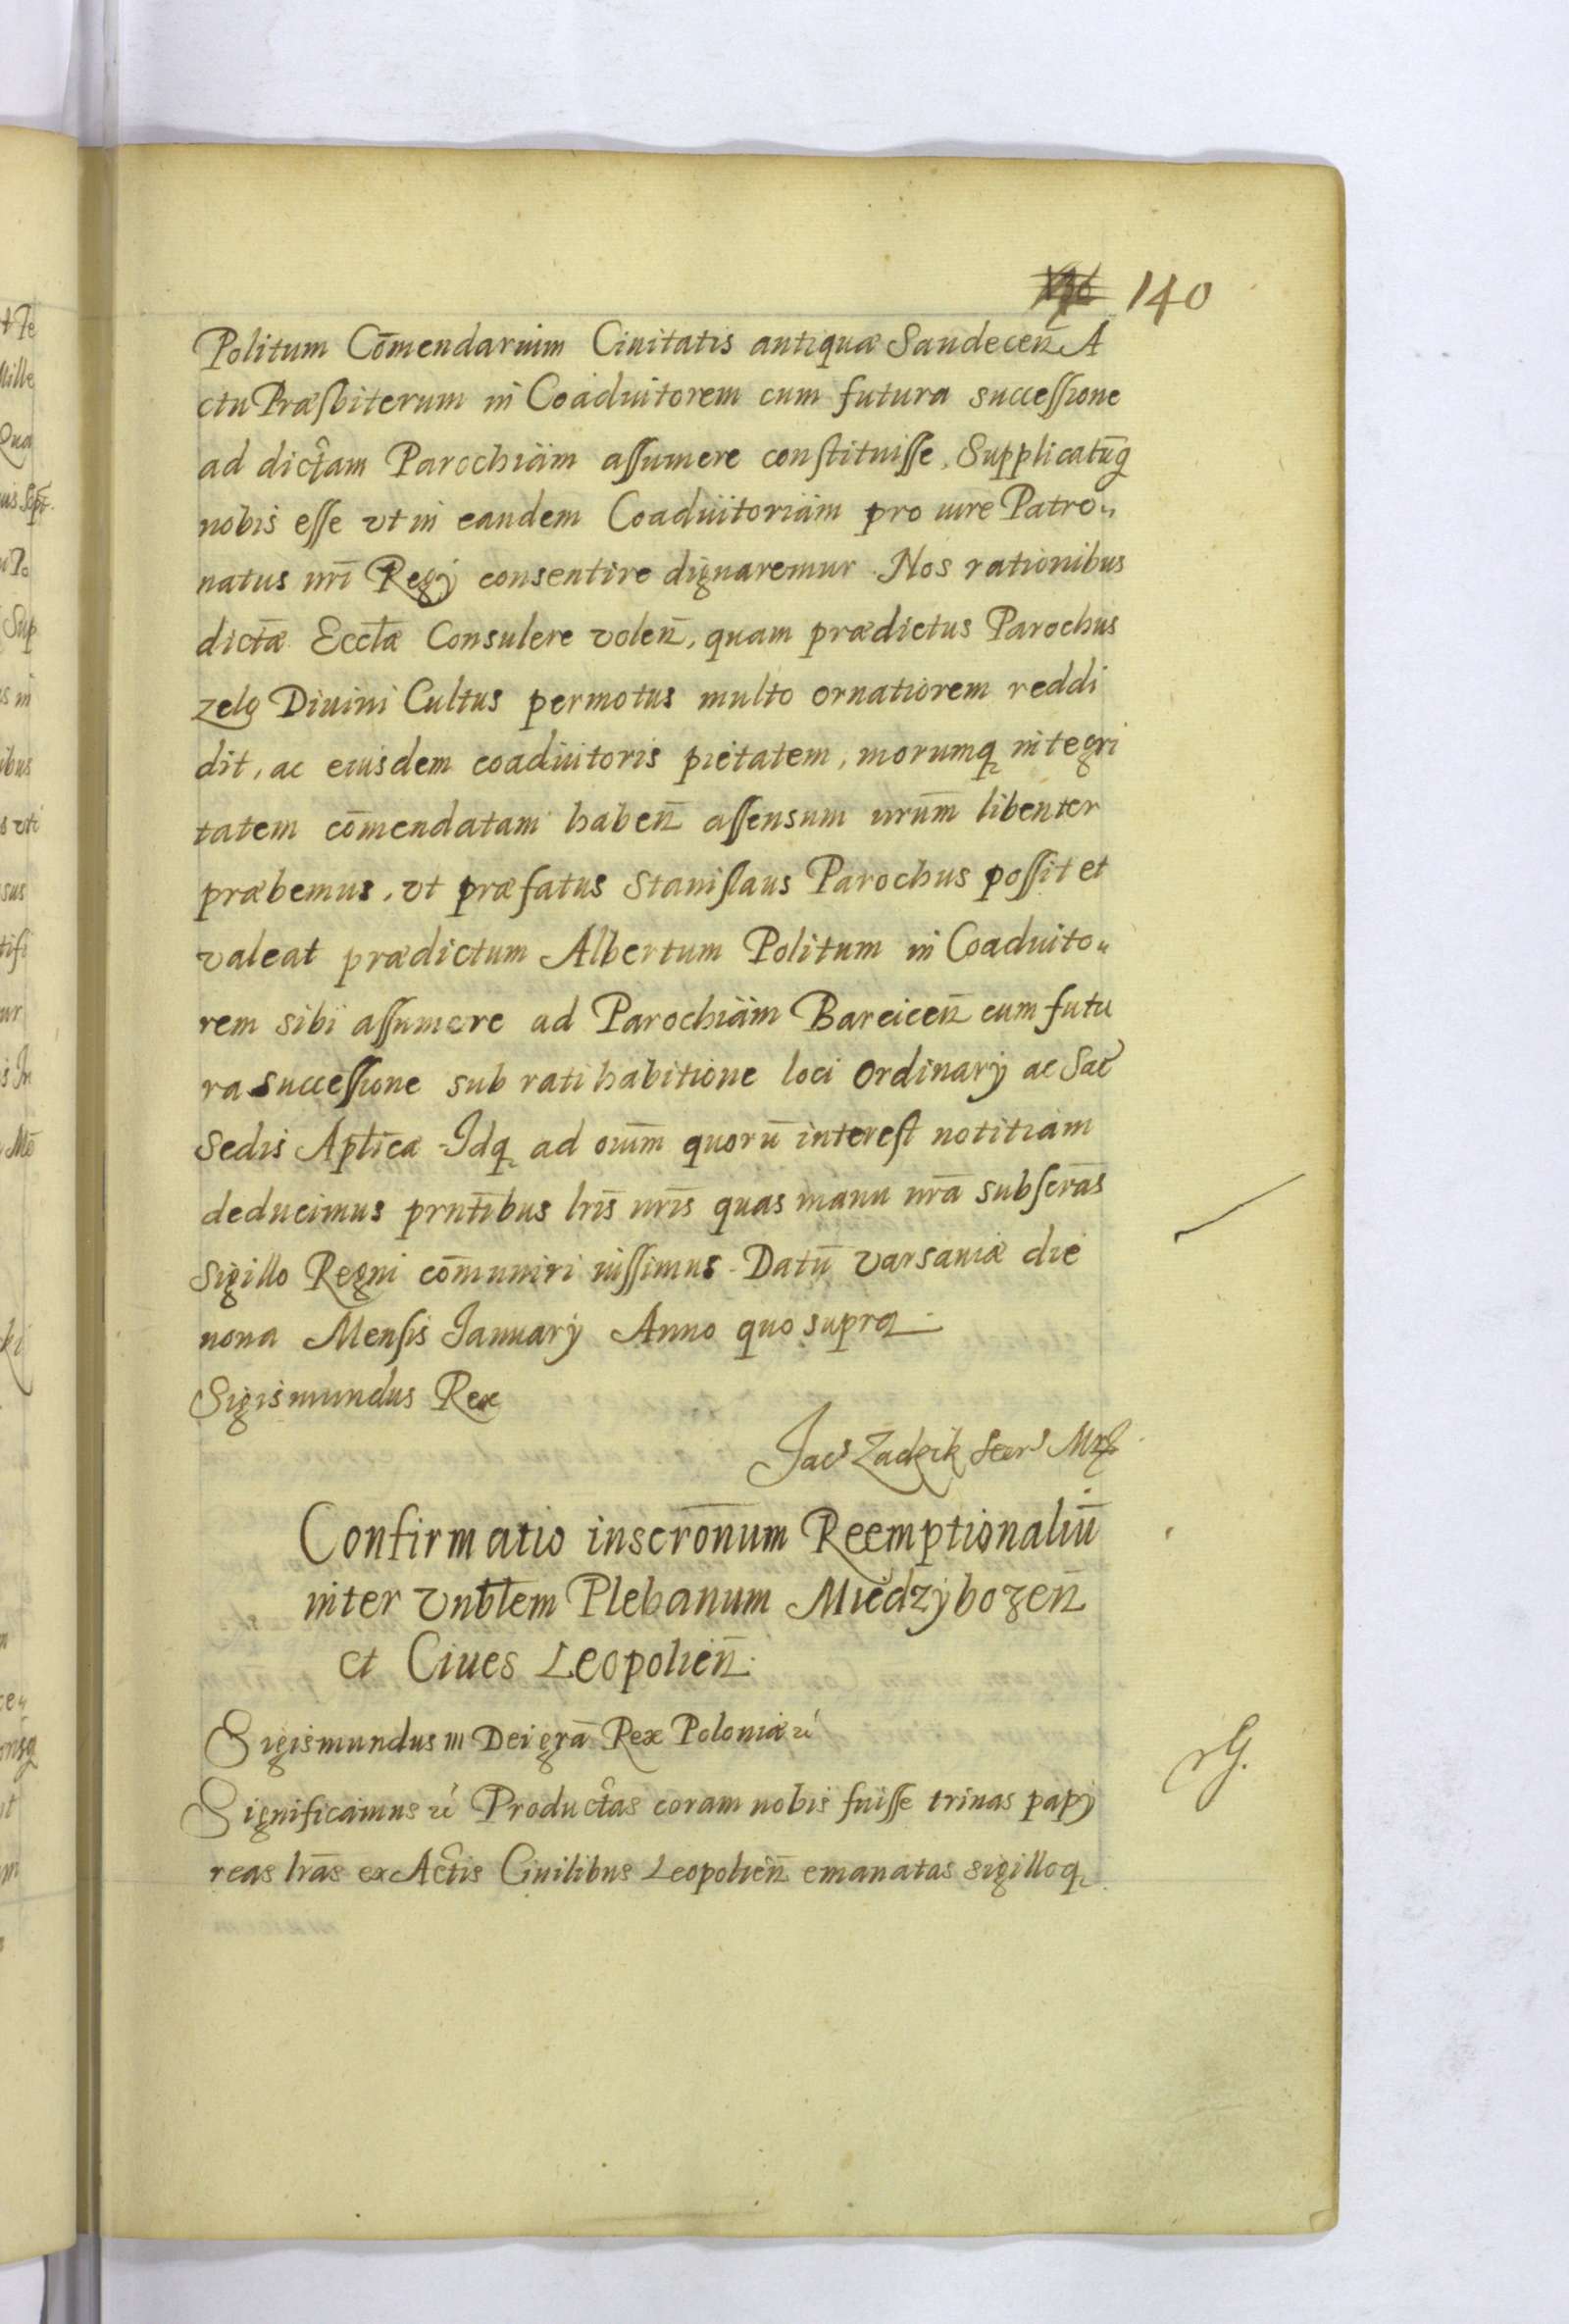 140
Politum Cōmendarium Ciuitatis antiquæ Sandecen̄ A
ctu Præsbiterum in Coadiutorem cum futura successione
ad dictam Parochiam assumere constituisse, Supplicatūq
nobis esse vt in eandem Coadiutoriam pro iure Patro„
natus nr̄i Regÿ consentire dignaremur. Nos rationibus
dictæ Eccl̄æ Consulere volen̄, quam prædictus Parochus
zelo Diuini Cultus permotus multo ornatiorem reddi
dit, ac eiusdem coadiutoris pietatem, morumq integri
tatem cōmendatam haben̄ assensum nrūm libenter
præbemus, vt præfatus Stanislaus Parochus possit et
valeat prædictum Albertum Politum in Coadiuto„
rem sibi assumere ad Parochiam Bareicen̄ cum futu
ra successione sub ratihabitione loci Ordinarÿ ac Sac
Sedis Aplīcæ. Idq ad oīum quorū interest notitiam
deducimus prn̄tibus lrīs nrīs quas manu nrā subscrās
Sigillo Regni cōmuniri iussimus. Datū Varsauiæ die
nona Mensis Januarÿ Anno quo supra.
Sigismundus Rex
Jac Zadzik Secr
Confirmatio inscrōnum Reemptionaliū
inter Vnblem Plebanum Miedzÿbozen̄
et Ciues Leopolien̄.
Sigismundus III Dei grā Rex Poloniæ
Significamus Productas coram nobis fuisse trinas papÿ
reas lrās ex Actis Ciuilibus Leopolien̄ emanatas sigilloq